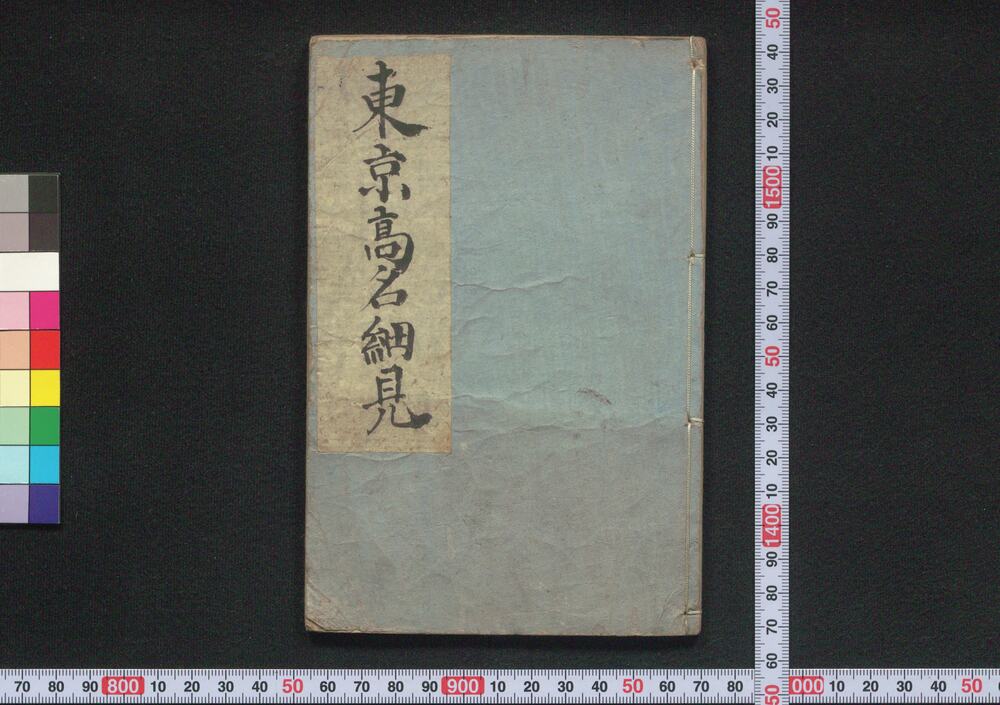 東京高名細見
50
40
30
20
10
1500
90
80
70
60
50
40
30
20
10
1400
90
80
70
60
50
70 80 90 800 10 20 30 40 50 60 70 80 90 900 10 20 30 40 50 60 70 80 000 10 20 30 40 50